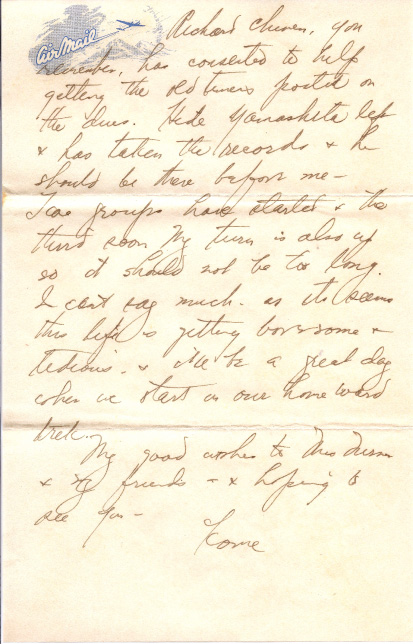 Air Mail
Richard Chinen, you
remember, has consented to help
getting the old timers posted on
the dues. Hide Yamashita left
& has taken the records & he
should be there before me -
Two groups have started & the
third soon My turn is also up
so it should not be too long.
I can't say much - as it seems
this life is getting borrsome &
tedious. & i'll be a great day
when we start on our homeward
trek.
My good wishes to Miss
& my friends - & hoping to
see you -